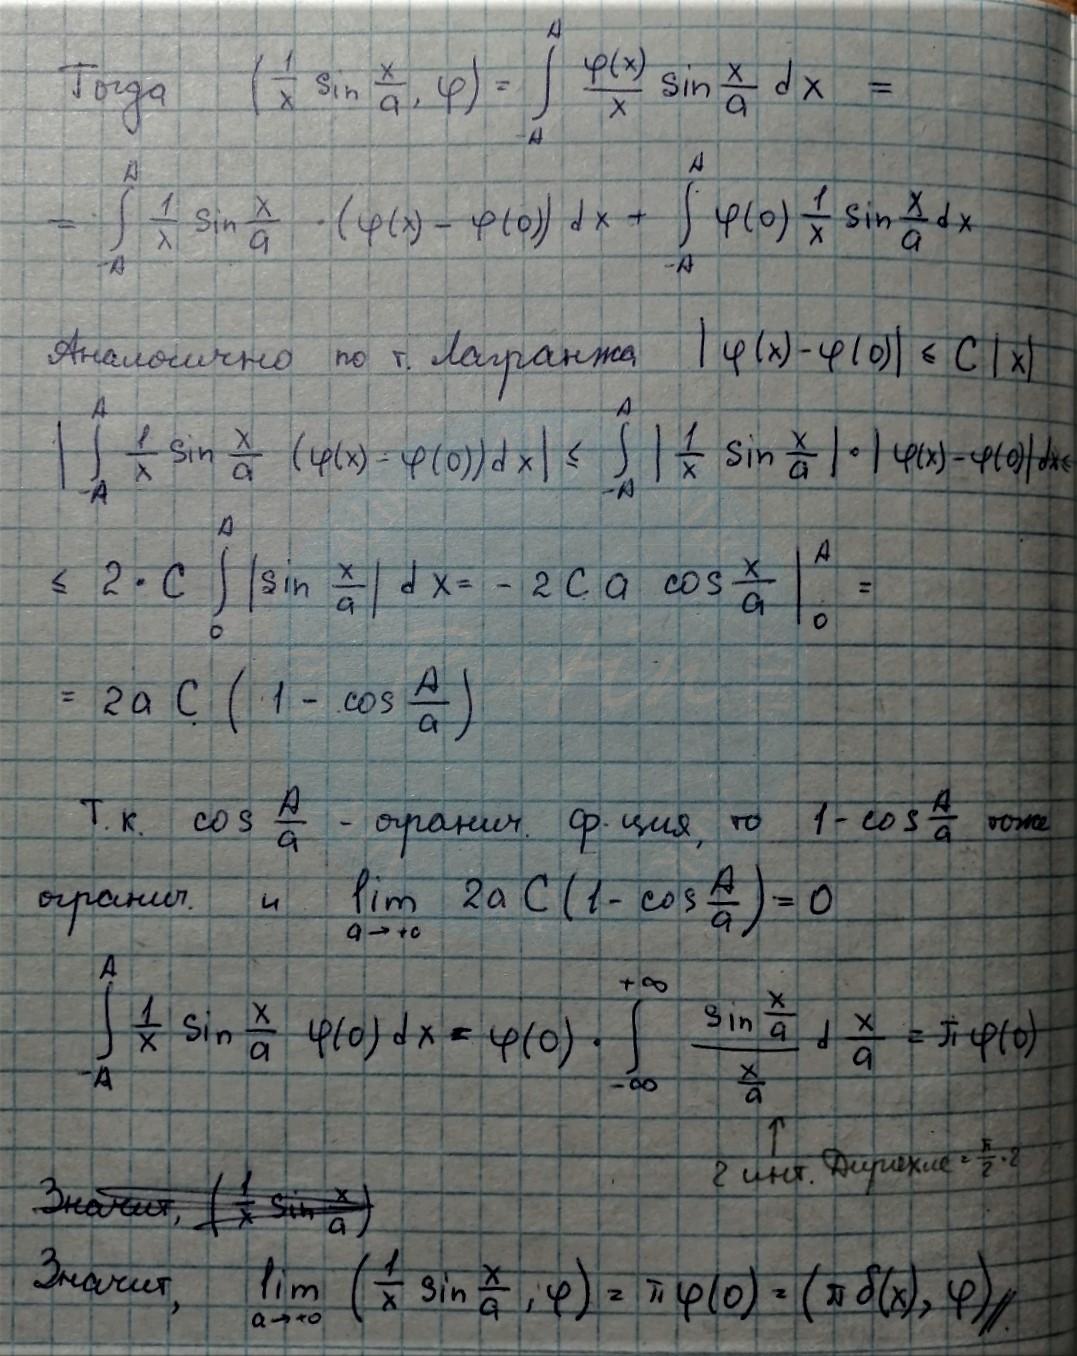 Тогда (1/x sin x/a, φ) = ∫_{-A}^{A} φ(x)/x sin x/a dx =
= ∫_{-A}^{A} 1/x sin x/a · (φ(x) - φ(0)) dx + ∫_{-A}^{A} φ(0) 1/x sin x/a dx
Аналогично по т. Лагранжа |φ(x) - φ(0)| ≤ C|x|
|∫_{-A}^{A} 1/x sin x/a (φ(x) - φ(0)) dx| ≤ ∫_{-A}^{A} |1/x sin x/a| · |φ(x) - φ(0)| dx ≤
≤ 2 · C ∫_{0}^{A} |sin x/a| dx = - 2 C a cos x/a |_{0}^{A} =
= 2a C (1 - cos A/a)
Т.к. cos A/a - огранич. ф-ция, то 1 - cos A/a тоже
огранич. и lim_{a→+0} 2a C (1 - cos A/a) = 0
∫_{-A}^{A} 1/x sin x/a φ(0) dx = φ(0) · ∫_{-∞}^{+∞} (sin x/a)/(x/a) d x/a = π φ(0)
↑
2 инт. Дирихле = π/2 · 2
Значит, (1/x sin x/a)
Значит, lim_{a→+0} (1/x sin x/a, φ) = π φ(0) = (π δ(x), φ) //